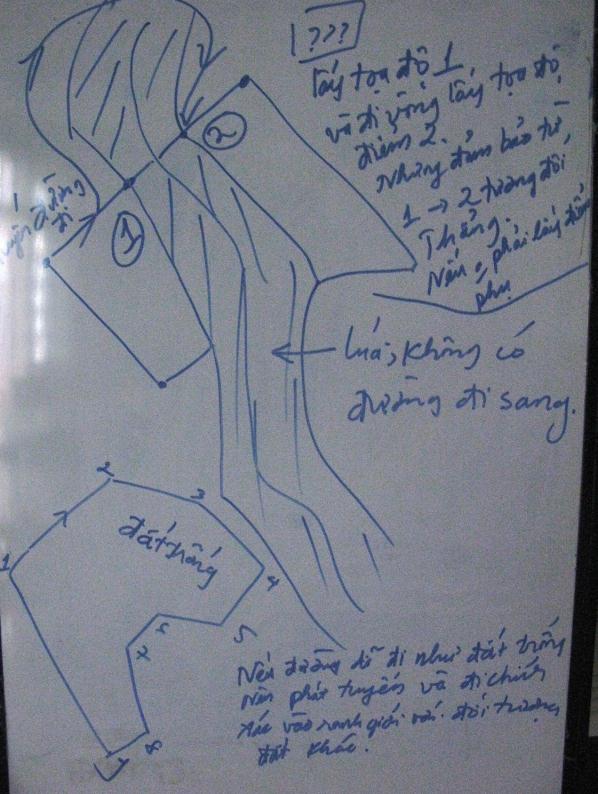 1???
lấy tọa độ 1
và đi vòng lấy tọa độ
điểm 2.
Nhưng đảm bảo từ
1 → 2 tương đối
Thẳng.
Nếu 0 phải lấy điểm
phụ
đường
đi
2
1
lúa, không có
đường đi sang.
2
3
đất trống
1
4
5
8
Nếu đường dễ đi như đất trống
nên phát tuyến và đi chính
xác vào ranh giới với đối tượng
đất khác.